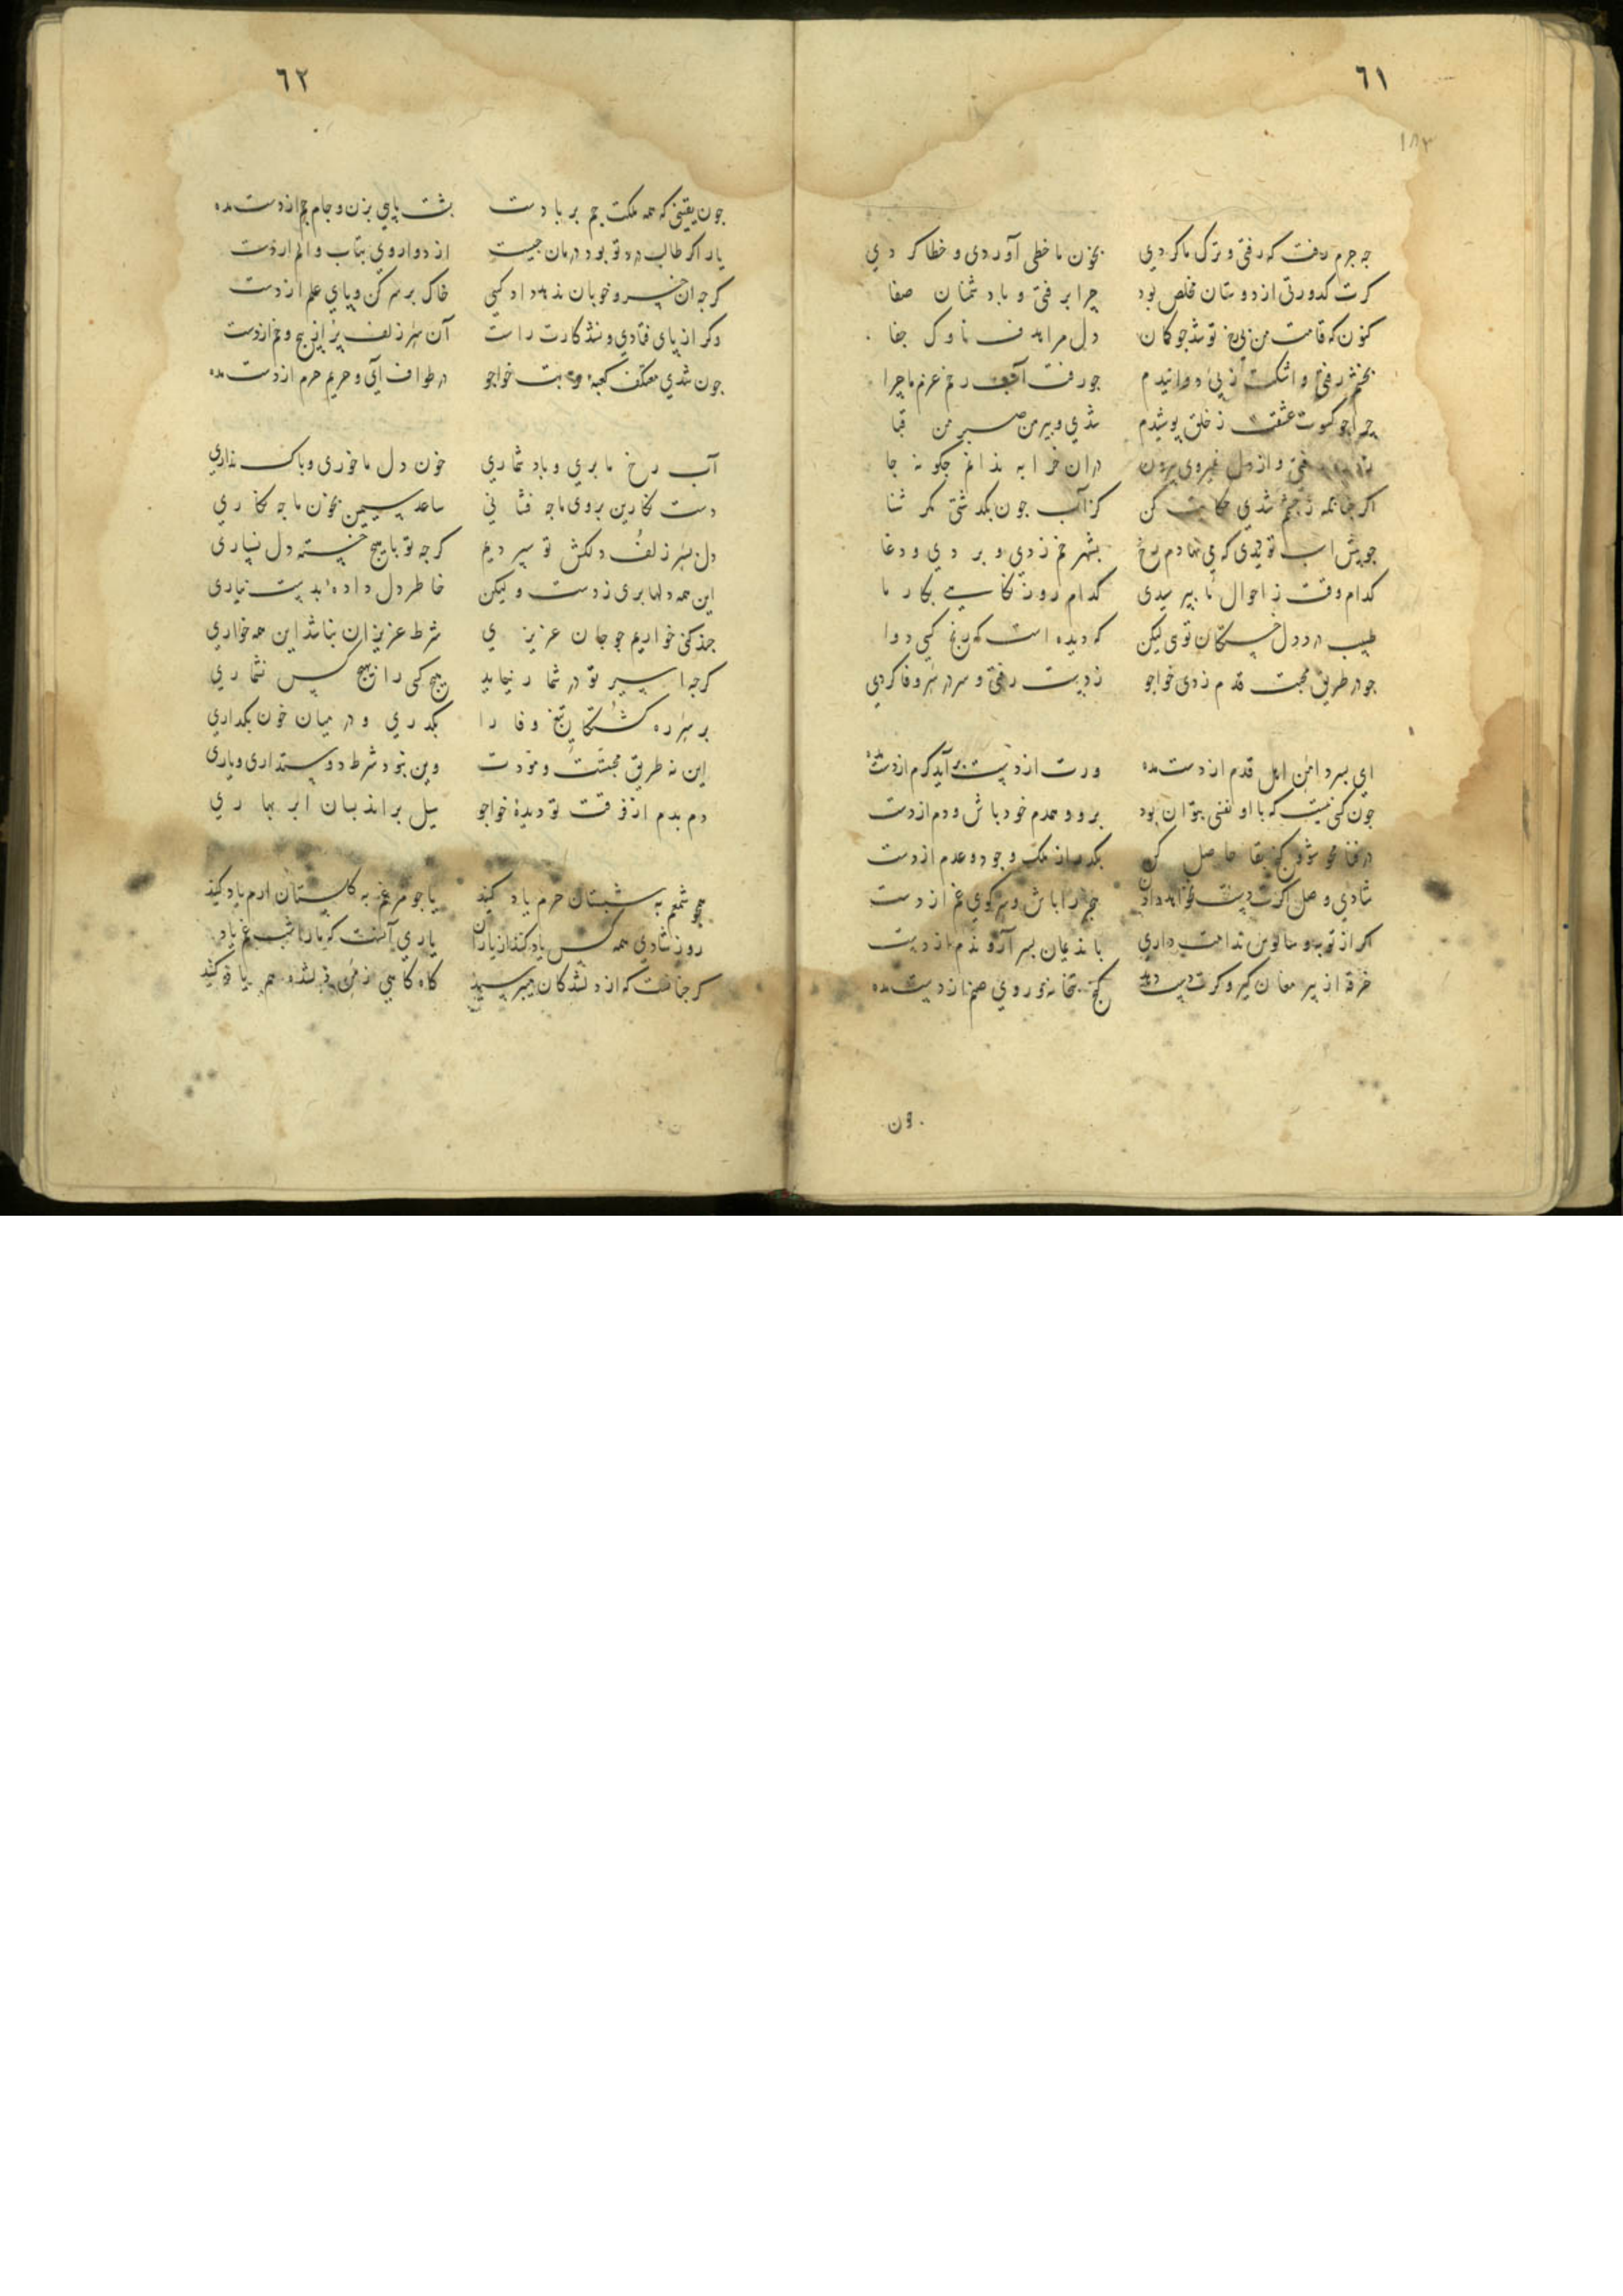 ٦١
١٨٣
چه جرم رفت که رفتی و ترک ما کردی بخون ما خطی آوردی و خطا کردی
کرت کدورتی از دوستان مخلص بود چرا برفتی و با دشمنان صفا
کنون که قامت من در پی تو شد جو کمان دل مرا هدف ناوک جفا
بخشم رفتی و اشکت ز پی دوانیدم جو رفت آب رخ عزم ماجرا
چرا جو کسوت عشقت ز خلق پوشیدم شدی و پیرهن صبر من قبا
رفتی و از دل نمیروی بیرون دران خرابه ندانم جکونه جا
اکر جنانکه ز چشم شدی حکایت کن کز آب جون بکدشتی مکر شنا
جو پیش اسب تو دیدی که می نهادم رخ بشهرخم زدی و بردی و دغا
کدام وقت ز احوال ما بپرسیدی کدام روز نکاهی بکار ما
طبیب درد دل خستکان توی لیکن که دیده است که رنج کسی دوا
جو در طریق محبت قدم زدی خواجو ز دست رفتی و سر در سر وفا کردی
ای پسر دامن اهل قدم از دست مده ورت از دست برآید کرم از دست مده
جون کسی نیست که با او نفسی بتوان بود برو و همدم خود باش و دم از دست
در فنا محو شو و کنج بقا حاصل کن بکدر از ملک وجود و عدم از دست
شادی وصل اکرت دست نخواهد دادن بنجر را باش و سر کوی غم از دست
اکر از توبه و سالوس ندامت داری با ندیمان بسر آر و ندم از دست
خرقه از پیر مغان کیر و کرت دست دهد کنج بتخانه و روی صنم از دست مده
ون
٦٢
جون یقینی که همه ملکت جم بر بادست پشت پای بزن و جام جم از دست مده
یار اکر طالب درد تو بود درمان جیست از دوا روی بتاب و الم از دست
کرجه ازین خسرو خوبان ندهد داد کسی خاک بر سر کن و پای علم از دست
وکر از پای فتادی و نشد کارت راست آن سر زلف پر از پیچ و خم از دست
جون شدی معتکف کعبه قربت خواجو در طواف آی و حریم حرم از دست مده
آب رخ ما بری و باد شماری خون دل ما خوری و باک نداری
دست نکارین بروی ما جه فشانی ساعد سیمین بخون ما جه نکاری
دل بسر زلف دلکش تو سپردیم کرجه تو با هیچ خسته دل نسپاری
این همه دلها بری ز دست و لیکن خاطر دل داده بدست نیاری
جند کنی خواریم جو جان عزیزی شرط عزیزان نباشد این همه خواری
کرجه اسیر تو در شمار نیاید هیچ کسی را ز هیچ کس نشماری
بر سر ره کشتکان تیغ وفا را بکدری و در میان خون بکداری
این نه طریق محبتست و مودت وین نبود شرط دوستداری و یاری
دم بدم از فرقت تو دیده خواجو سیل براند بسان ابر بهاری
همچو شمعم به شبستان حرم یاد کنید یا جو مرغم به کلستان ارم یاد کنید
روز شادی همه کس یاد کند از یاران یاری آنست که ما را شب غم یاد
کر جنانست که از دلشدکان میپرسید کاه کاهی ز من دلشده هم یاد کنید